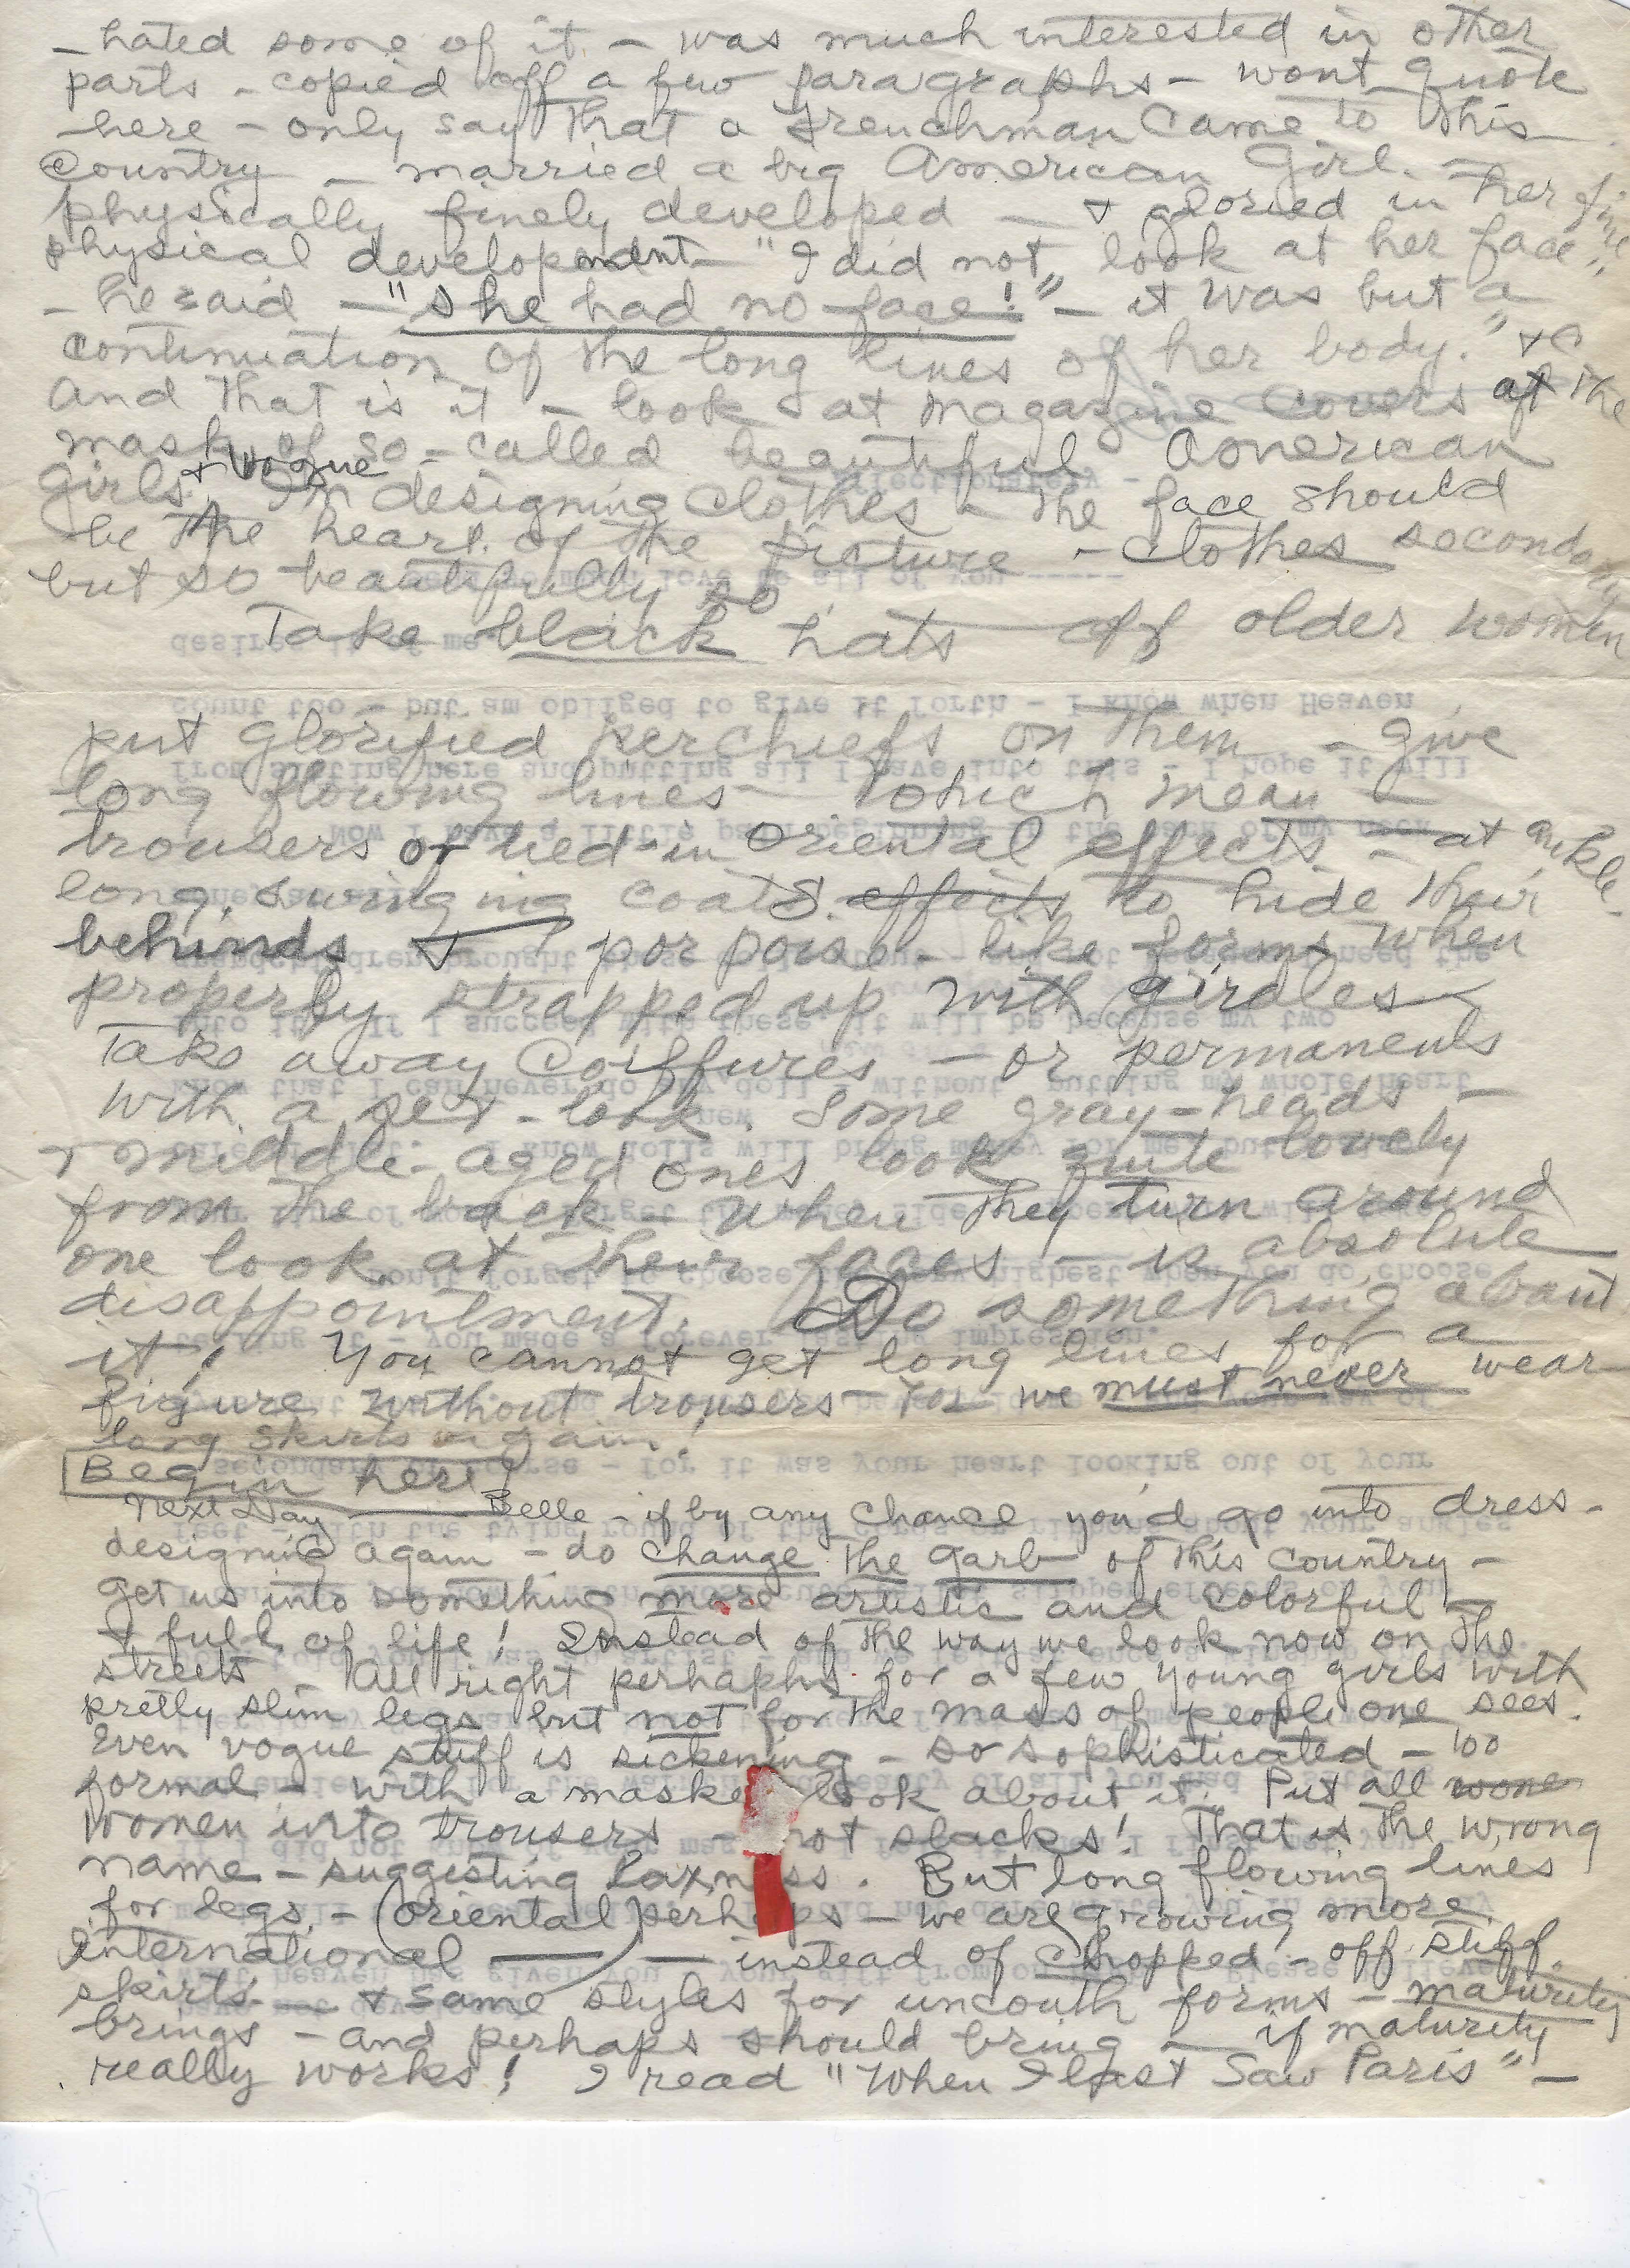 - hated some of it - was much interested in other
parts - copied off a few paragraphs - wont quote
here - only say that a Frenchman came to this
country - married a big American Girl. -
physically finely developed - & gloried in her fine
physical development - "I did not look at her face"
- he said - "she had no face!" - it was but a
continuation of the long lines of her body."
And that is it - look at magazine covers at the
mask of so-called beautiful American
girls & Vogue In designing clothes - the face should
be the heart of the picture - clothes secondary
but so beautifully so
Take black hats off older women
put glorified kerchiefs on them - give
long flowing lines - which mean -
trousers or tied-in Oriental effects - at ankle.
long, swinging coats effects to hide their
behinds & porpoise-like forms when
properly strapped up with girdles
Take away coiffures - or permanents
with a set-look. Some gray-heads -
& middle-aged ones look quite lovely
from the back - When they turn around
one look at their faces - is absolute
disappointment. Do something about
it! You cannot get long lines for a
figure without trousers - for we must never wear
long skirts again!
Begin here!
Next Day Belle - if by any chance you'd go into dress-
designing again - do change the garb of this country -
get us into something more artistic and colorful -
& full of life! Instead of the way we look now on the
streets - All right perhaphs for a few young girls with
pretty slim legs but not for the mass of people one sees.
Even vogue stuff is sickening - so sophisticated - too
formal - with a maske look about it. Put all wome
women into trousers - not slacks! That is the wrong
name - suggesting laxness. But long flowing lines
for legs - (oriental perhaps - we are growing more
international) - instead of chopped-off stiff
skirts - & same styles for uncouth forms - maturity
brings - and perhaps should bring - if maturity
really works! I read "When I last Saw Paris" -